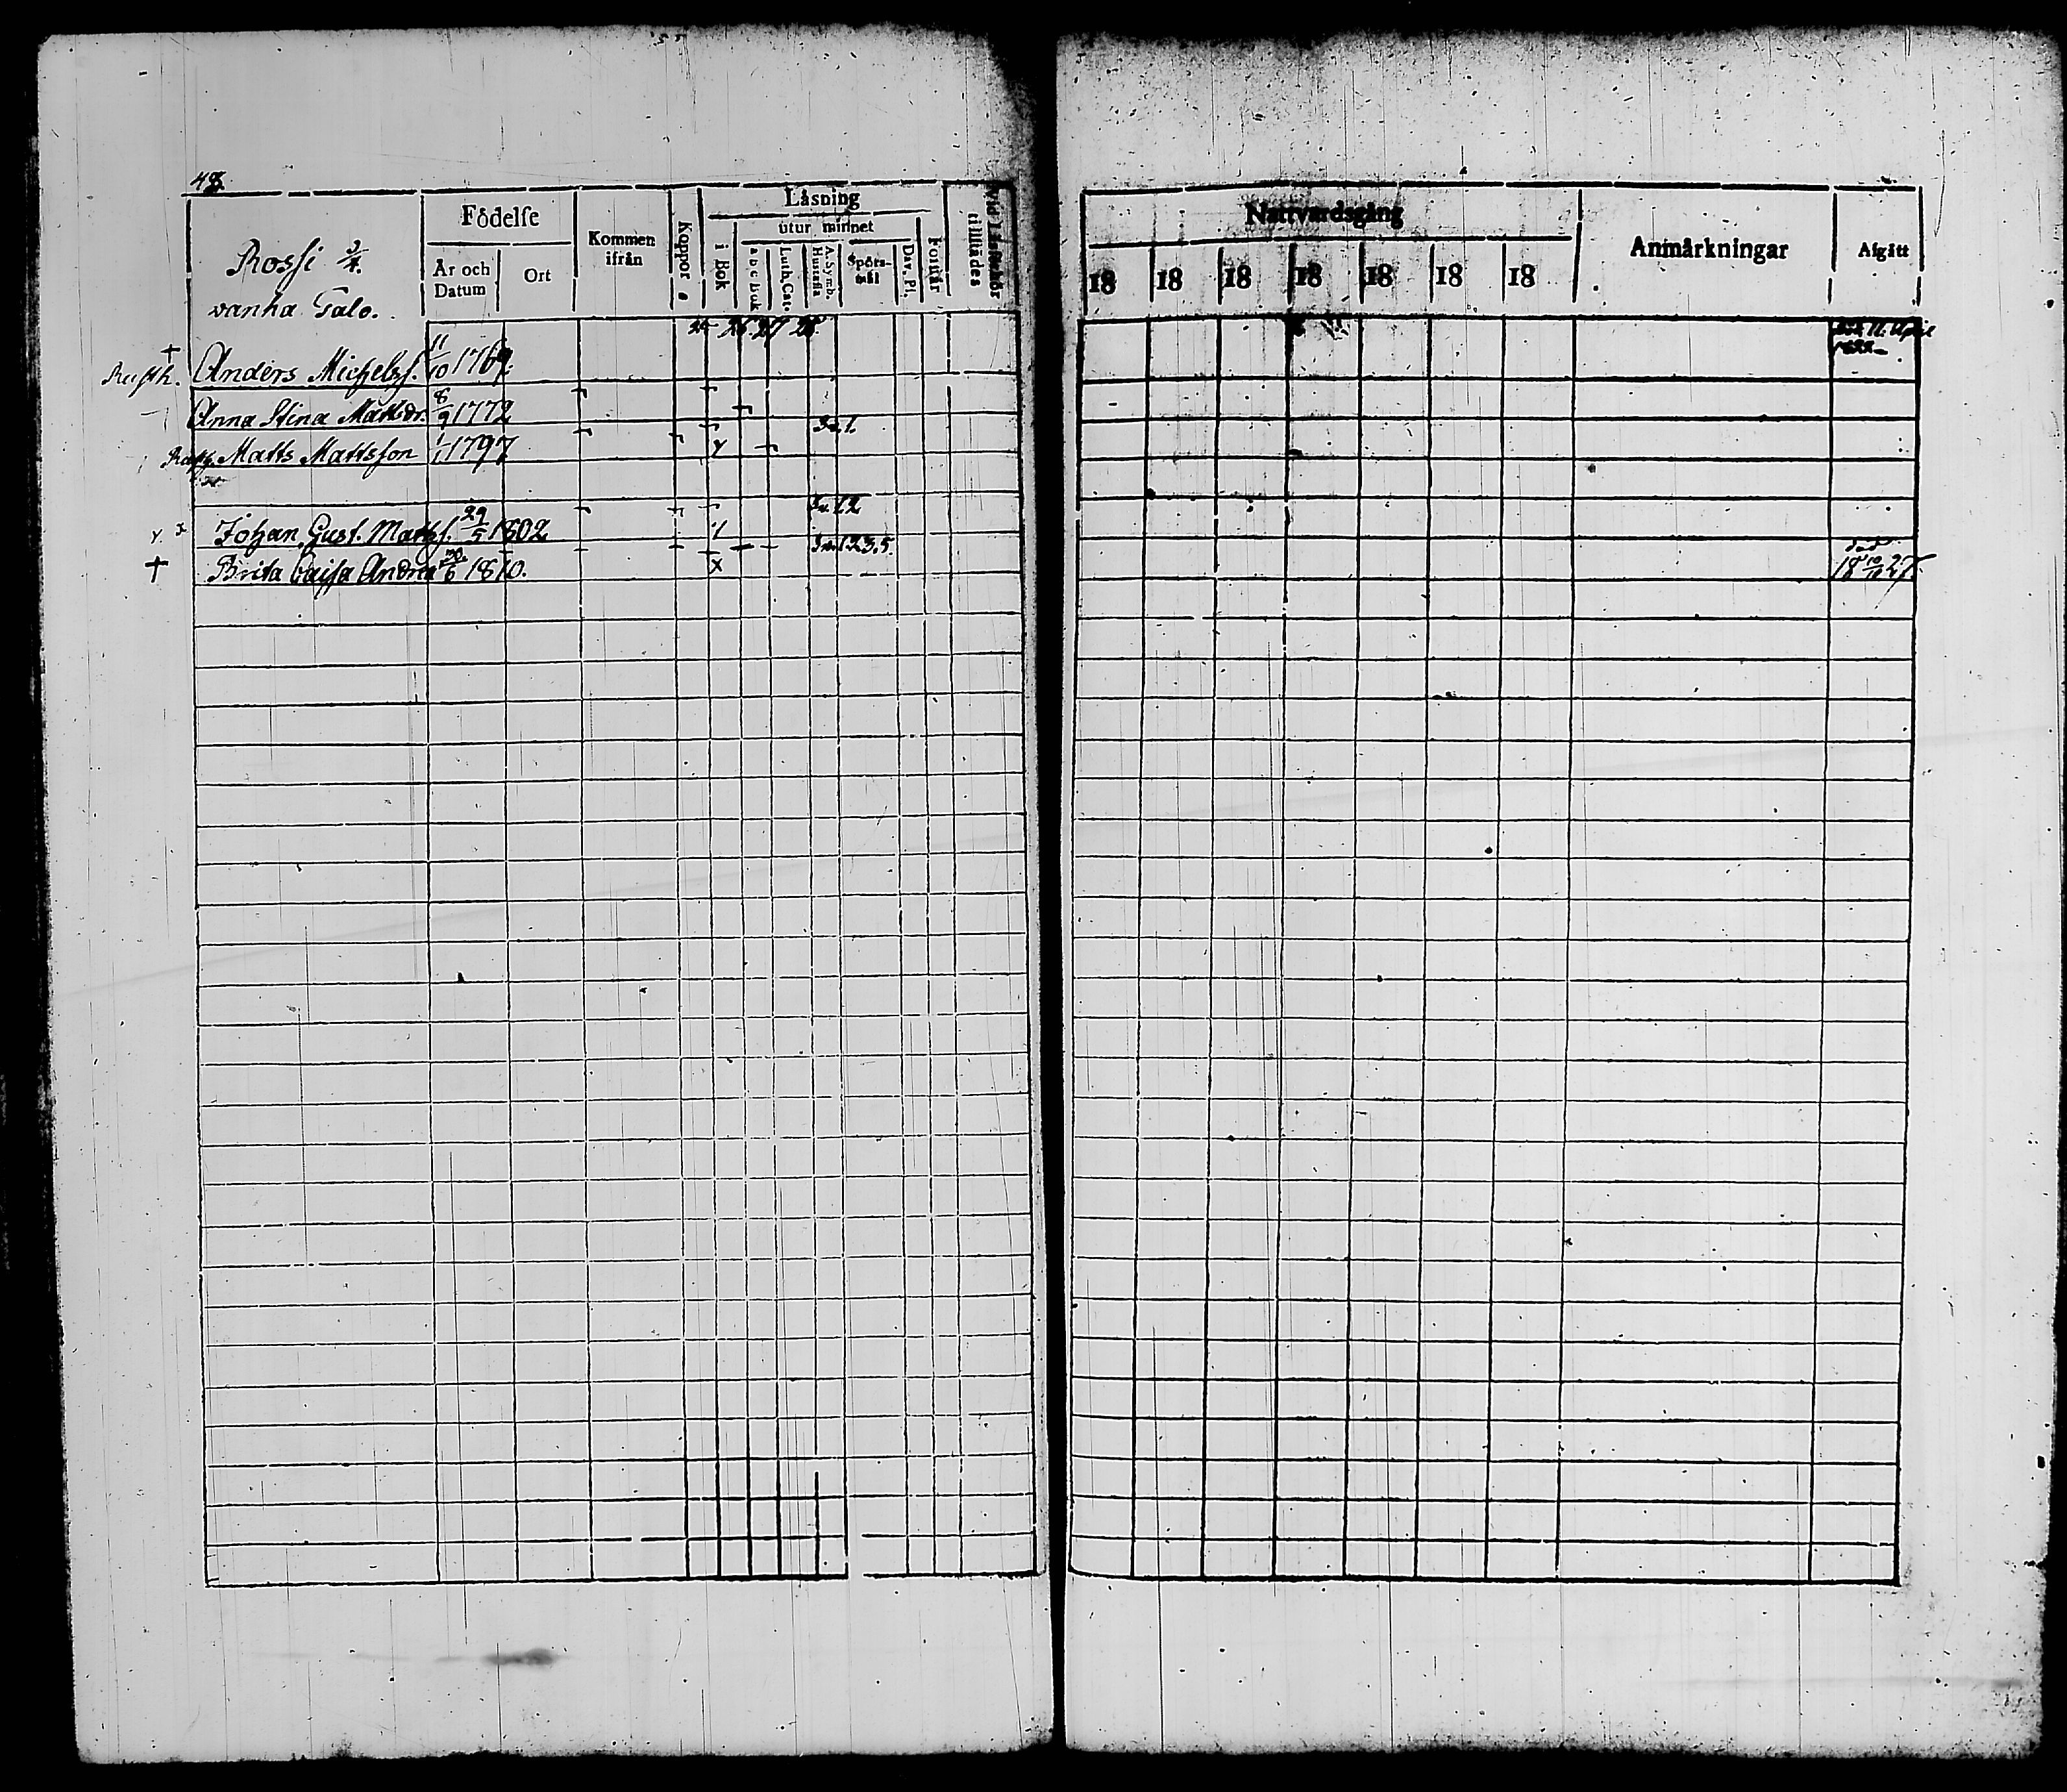 48.
Rossi 3/4.
vanha Talo.
Födelse
År och Datum
Ort
Kommen ifrån
Koppor
Läsning
i Bok
utur minnet
a b c Bok
Luth. Cat.
A. Symb. Hustafla
Spörsmål
Dav. Pl.
Förstår
tillstädes
Nattvardsgång
18 18 18 18 18 18 18
Anmärkningar
Afgått
26 27 28
† Rusth. Anders Michelss. 11/10 1769. April
Anna Stina Mattsdr. 8/9 1772
Matts Mattsson 1/1 1797
Johan Gust. Mattss. 29/5 1802
† Brita Caisa Andrea 30/6 1810. död 18 10/10 27.